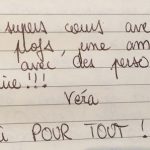 supers cours ave
profs, une am
avec des perso
!!!
Véra
POUR TOUT !